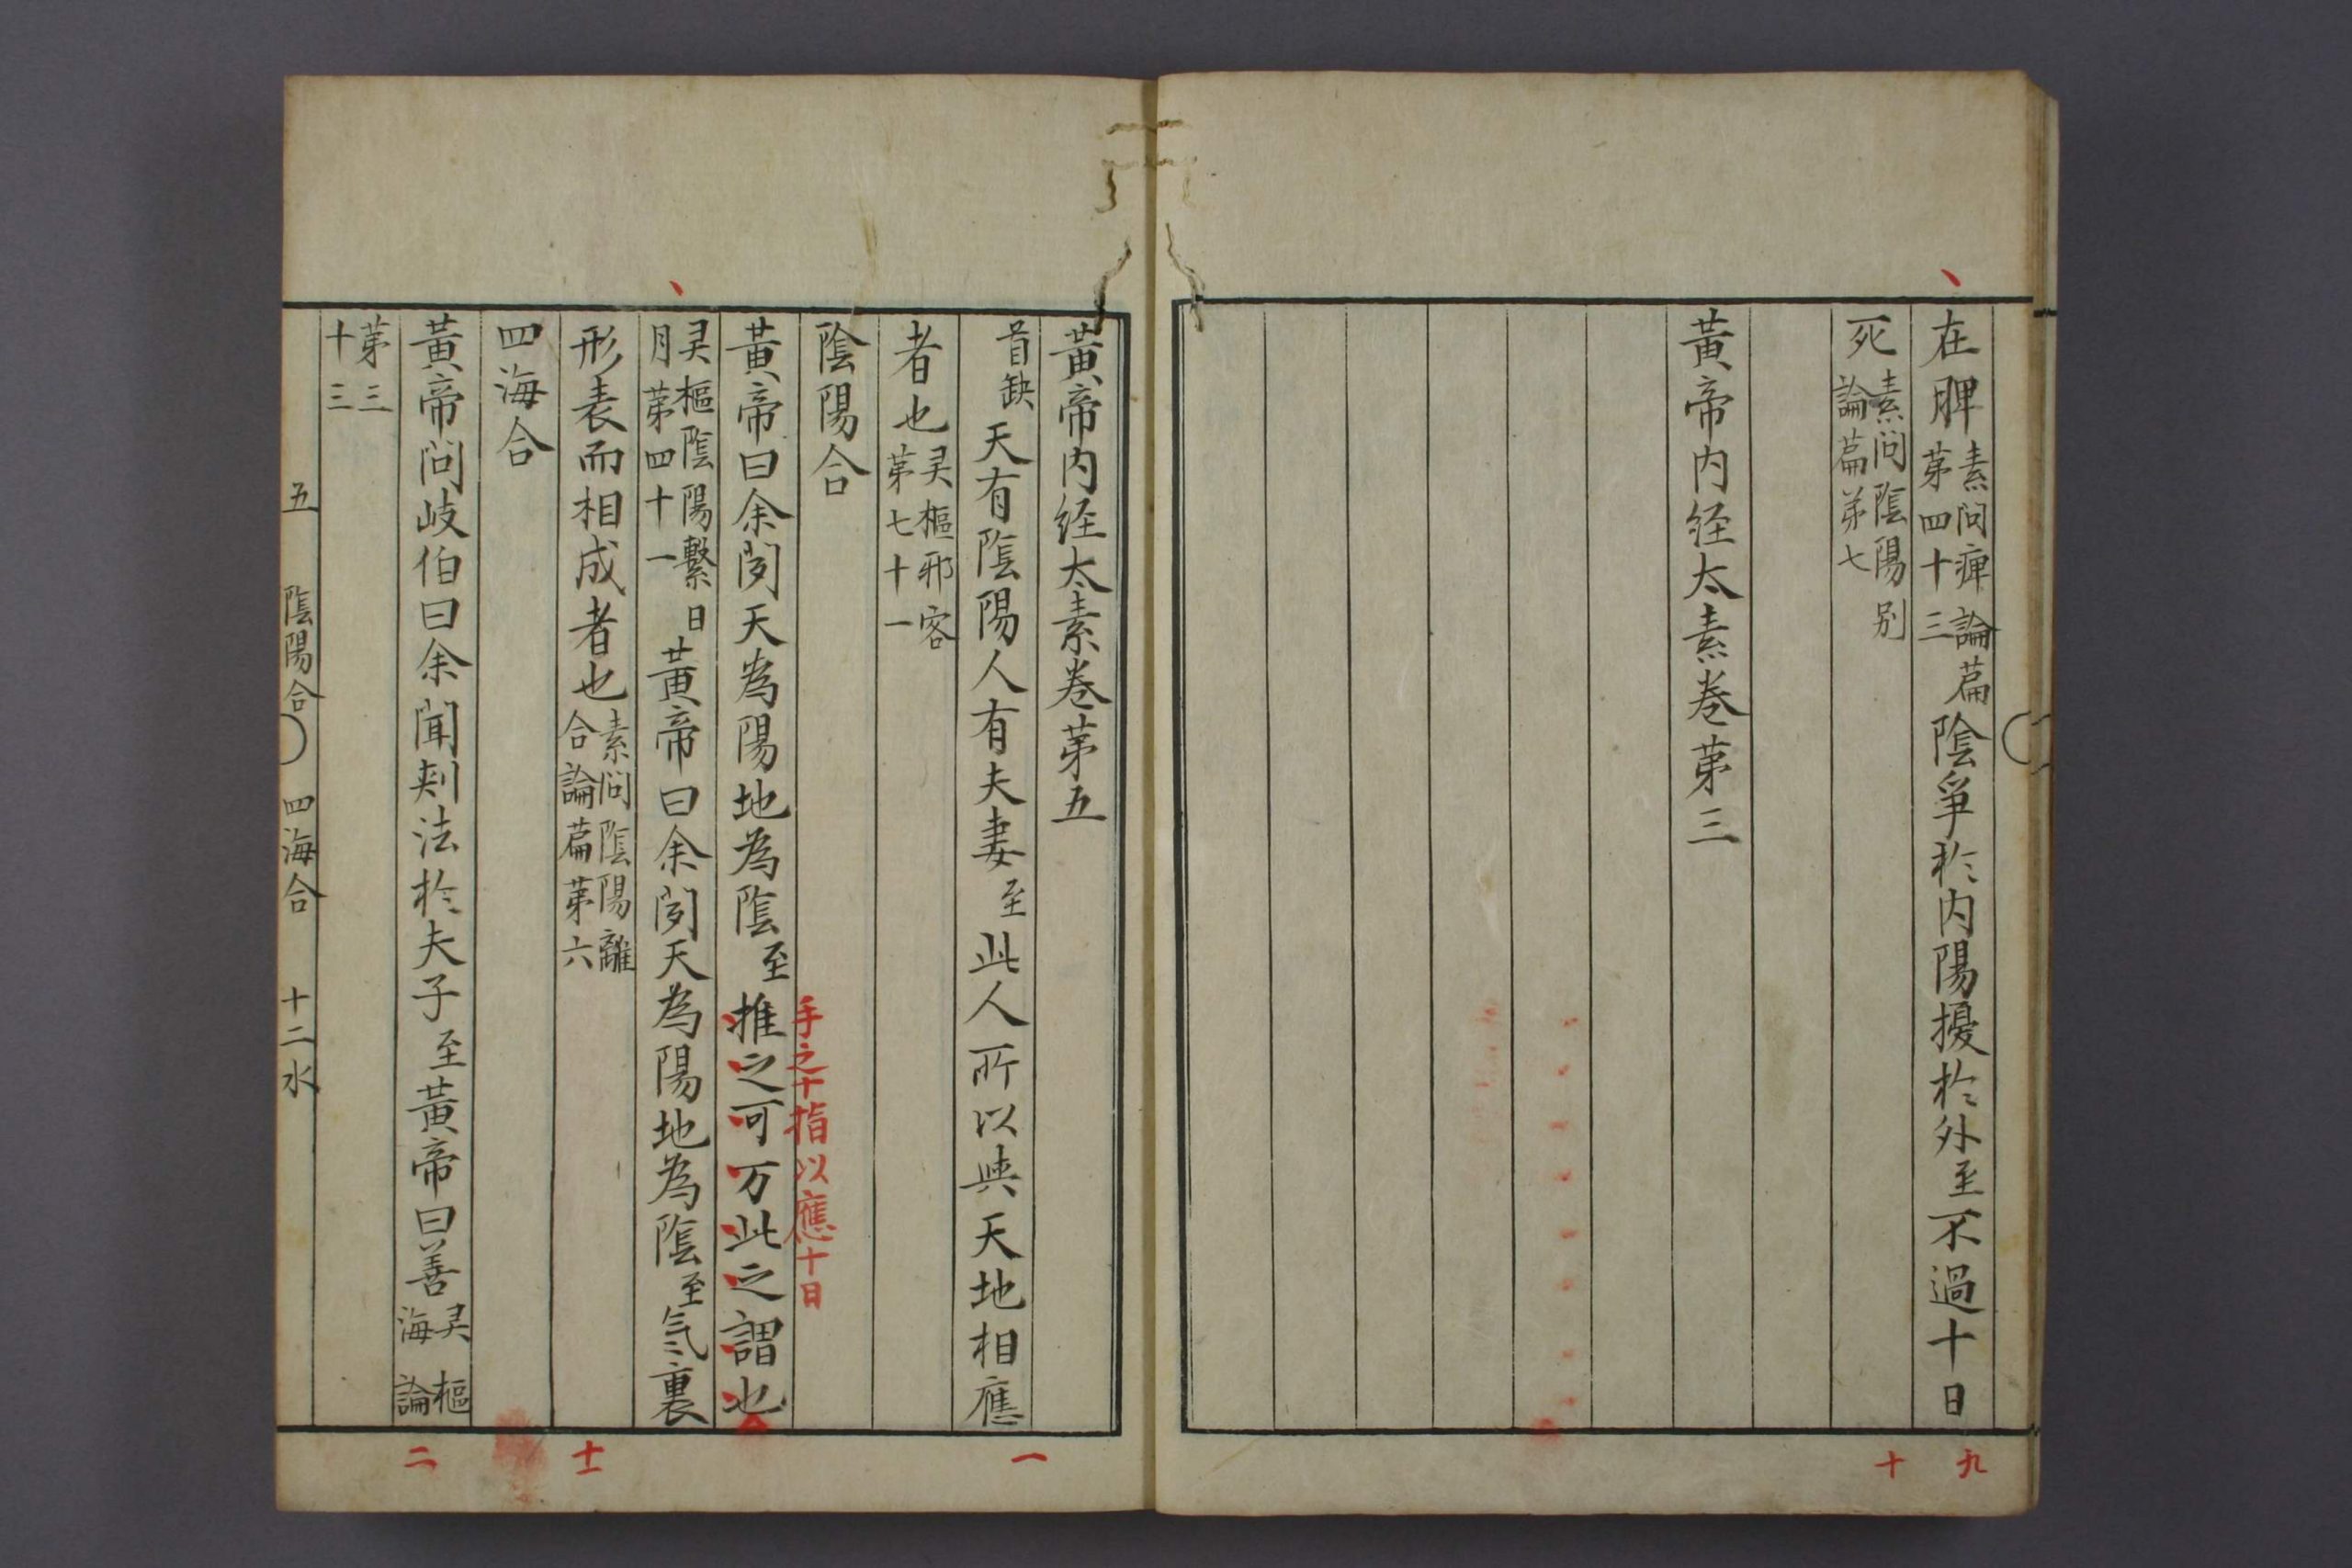 在脾素問痺論篇第四十三陰爭於内陽擾於外至不過十日
死素問陰陽别論篇第七
黃帝内経太素巻第三
九
十
黃帝内経太素巻第五
首缺天有陰陽人有夫妻至此人所以與天地相應
者也灵樞邪客第七十一
陰陽合
手之十指以應十日
黃帝曰余闻天為陽地為陰至推之可万此之謂也
灵樞陰陽繫日月第四十一黃帝曰余闻天為陽地為陰至気裏
形表而相成者也素問陰陽離合論篇第六
四海合
黃帝問岐伯曰余聞刾法於夫子至黃帝曰善灵樞海論
第三十三
五 陰陽合 四海合 十二水
一
士
二